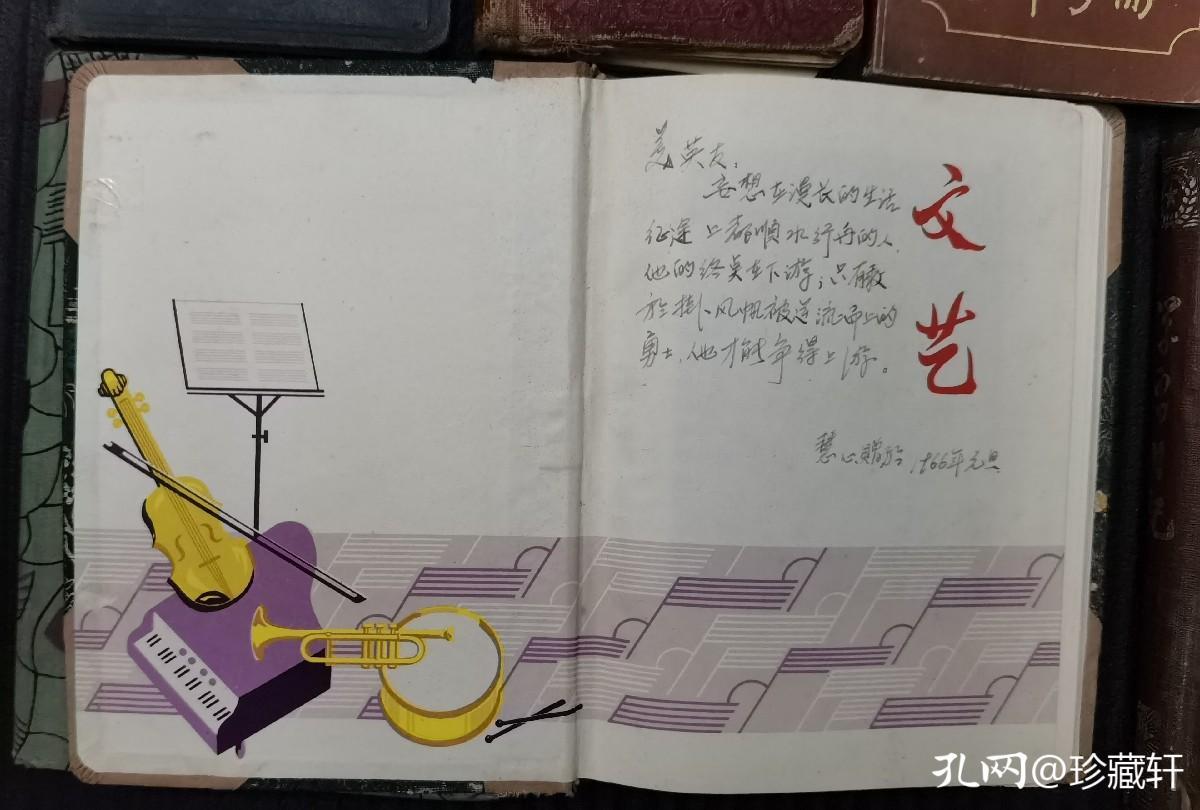 美英友:
妄想在漫长的生活
征途上都順水行舟的人,
他的终点在下游;只有敢
於掛风帆破逆流而上的
勇士,他才能争得上游。
慧心赠於 1966年元旦
文艺
孔网@珍藏轩